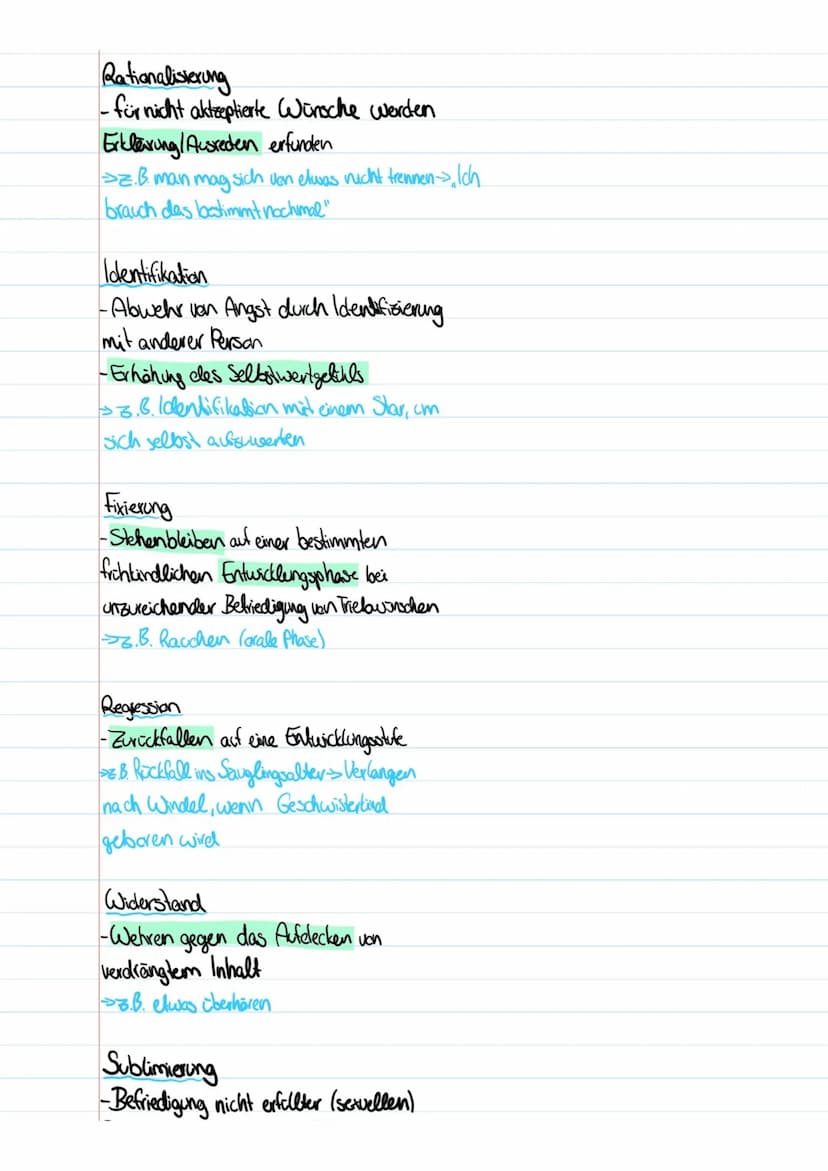 Rationalisierung
- für nicht aktzeptierte Wünsche werden
Erklärung/Ausreden erfunden
→z.B. man mag sich von etwas nicht trennen→„Ich
brauch das bestimmt nochmal"
Identifikation
- Abwehr von Angst durch Identifizierung
mit anderer Person
- Erhöhung des Selbstwertgefühls
→z.B. Identifikation mit einem Star, um
sich selbst aufzuwerten
Fixierung
- Stehenbleiben auf einer bestimmten
frühkindlichen Entwicklungsphase bei
unzureichender Befriedigung von Triebwünschen
→z.B. Rauchen (orale Phase)
Regression
- Zurückfallen auf eine Entwicklungsstufe
→z.B. Rückfall ins Säuglingsalter→Verlangen
nach Windel, wenn Geschwisterkind
geboren wird
Widerstand
- Wehren gegen das Aufdecken von
verdrängtem Inhalt
→z.B. etwas überhören
Sublimierung
- Befriedigung nicht erfüllter (sexuellen)